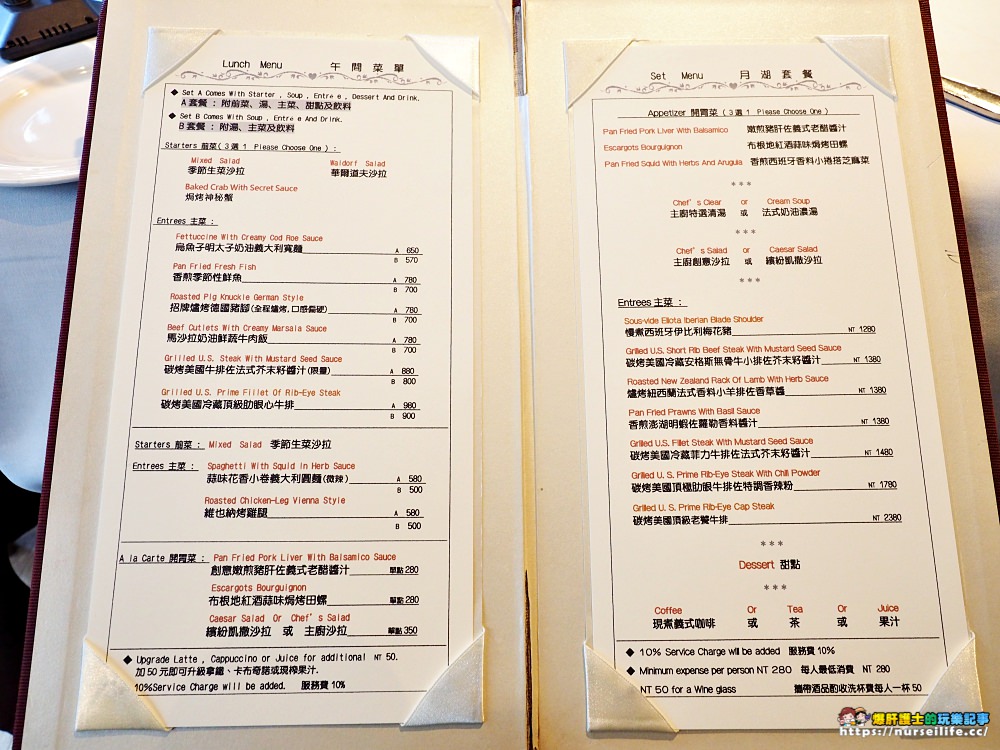 Lunch Menu 午間菜單
◆ Set A Comes With Starter , Soup , Entrée , Dessert And Drink.
A套餐 : 附前菜、湯、主菜、甜點及飲料
◆ Set B Comes With Soup , Entrée And Drink.
B套餐 : 附湯、主菜及飲料
Starters 前菜( 3 選 1 Please Choose One ) :
Mixed Salad Waldorf Salad
季節生菜沙拉 華爾道夫沙拉
Baked Crab With Secret Sauce
焗烤神秘蟹
Entrees 主菜 :
Fettuccine With Creamy Cod Roe Sauce
烏魚子明太子奶油義大利寬麵 A 650
B 570
Pan Fried Fresh Fish
香煎季節性鮮魚 A 780
B 700
Roasted Pig Knuckle German Style
招牌爐烤德國豬腳(全程爐烤,口感偏硬) A 780
B 700
Beef Cutlets With Creamy Marsala Sauce
馬沙拉奶油鮮蔬牛肉飯 A 780
B 700
Grilled U.S. Steak With Mustard Seed Sauce
碳烤美國牛排佐法式芥末籽醬汁(限量) A 880
B 800
Grilled U.S. Prime Fillet Of Rib-Eye Steak
碳烤美國冷藏頂級肋眼心牛排 A 980
B 900
Starters 前菜 : Mixed Salad 季節生菜沙拉
Entrees 主菜 : Spaghetti With Squid In Herb Sauce
蒜味花香小卷義大利圓麵(微辣) A 580
B 500
Roasted Chicken-Leg Vienna Style
維也納烤雞腿 A 580
B 500
A la Carte 開胃菜 : Pan Fried Pork Liver With Balsamico Sauce
創意嫩煎豬肝佐義式老醋醬汁 單點 280
Escargots Bourguignon
布根地紅酒蒜味焗烤田螺 單點 280
Caesar Salad Or Chef's Salad
繽紛凱撒沙拉 或 主廚沙拉 單點 350
◆ Upgrade Latte , Cappuccino or Juice for additional NT 50.
加 50 元即可升級拿鐵、卡布奇諾或現榨果汁.
10%Service Charge will be added. 服務費 10%
Set Menu 月湖套餐
Appetizer 開胃菜 ( 3 選 1 Please Choose One )
Pan Fried Pork Liver With Balsamico 嫩煎豬肝佐義式老醋醬汁
Escargots Bourguignon 布根地紅酒蒜味焗烤田螺
Pan Fried Squid With Herbs And Arugula 香煎西班牙香料小捲搭芝麻菜
***
Chef's Clear or Cream Soup
主廚特選清湯 或 法式奶油濃湯
***
Chef's Salad or Caesar Salad
主廚創意沙拉 或 繽紛凱撒沙拉
***
Entrees 主菜 :
Sous-vide Ellota Iberian Blade Shoulder
慢煮西班牙伊比利梅花豬 NT 1280
Grilled U.S. Short Rib Beef Steak With Mustard Seed Sauce
碳烤美國冷藏安格斯無骨牛小排佐芥末籽醬汁 NT 1380
Roasted New Zealand Rack Of Lamb With Herb Sauce
爐烤紐西蘭法式香料小羊排佐香草醬 NT 1380
Pan Fried Prawns With Basil Sauce
香煎澎湖明蝦佐羅勒香料醬汁 NT 1380
Grilled U.S. Fillet Steak With Mustard Seed Sauce
碳烤美國冷藏菲力牛排佐法式芥末籽醬汁 NT 1480
Grilled U.S. Prime Rib-Eye Steak With Chili Powder
碳烤美國頂極肋眼牛排佐特調香辣粉 NT 1780
Grilled U. S. Prime Rib-Eye Cap Steak
碳烤美國頂級老饕牛排 NT 2380
***
Dessert 甜點
***
Coffee Or Tea Or Juice
現煮義式咖啡 或 茶 或 果汁
◆ 10% Service Charge will be added 服務費 10%
◆ Minimum expense per person NT 280 每人最低消費 NT 280
NT 50 for a Wine glass 攜帶酒品酌收洗杯費每人一杯 50
爆肝護士的玩樂記事
https://nurseilife.cc/